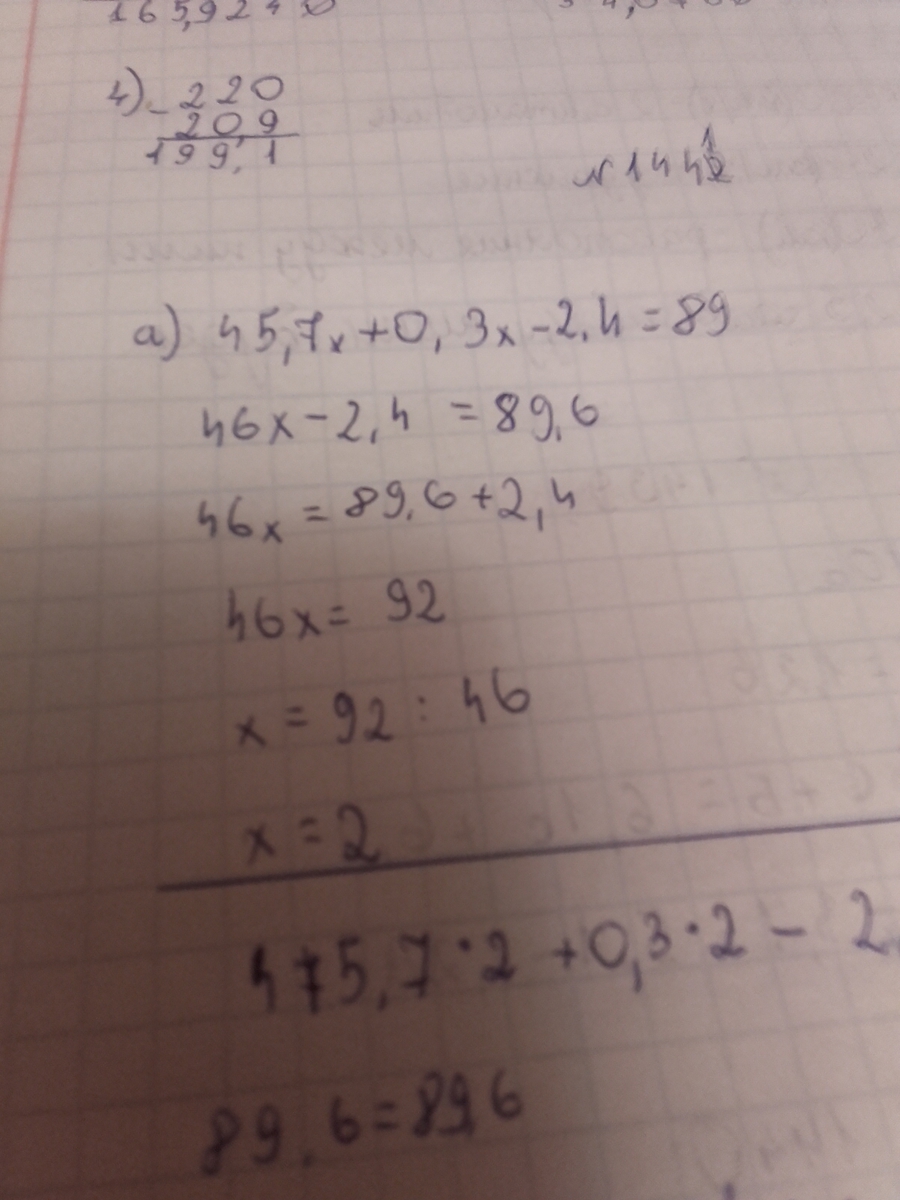 165,924
4) - 220
20,9
199,1
№ 1441
а) 45,7x + 0,3x - 2,4 = 89
46x - 2,4 = 89,6
46x = 89,6 + 2,4
46x = 92
x = 92 : 46
x = 2
45,7 · 2 + 0,3 · 2 - 2,
89,6 = 89,6